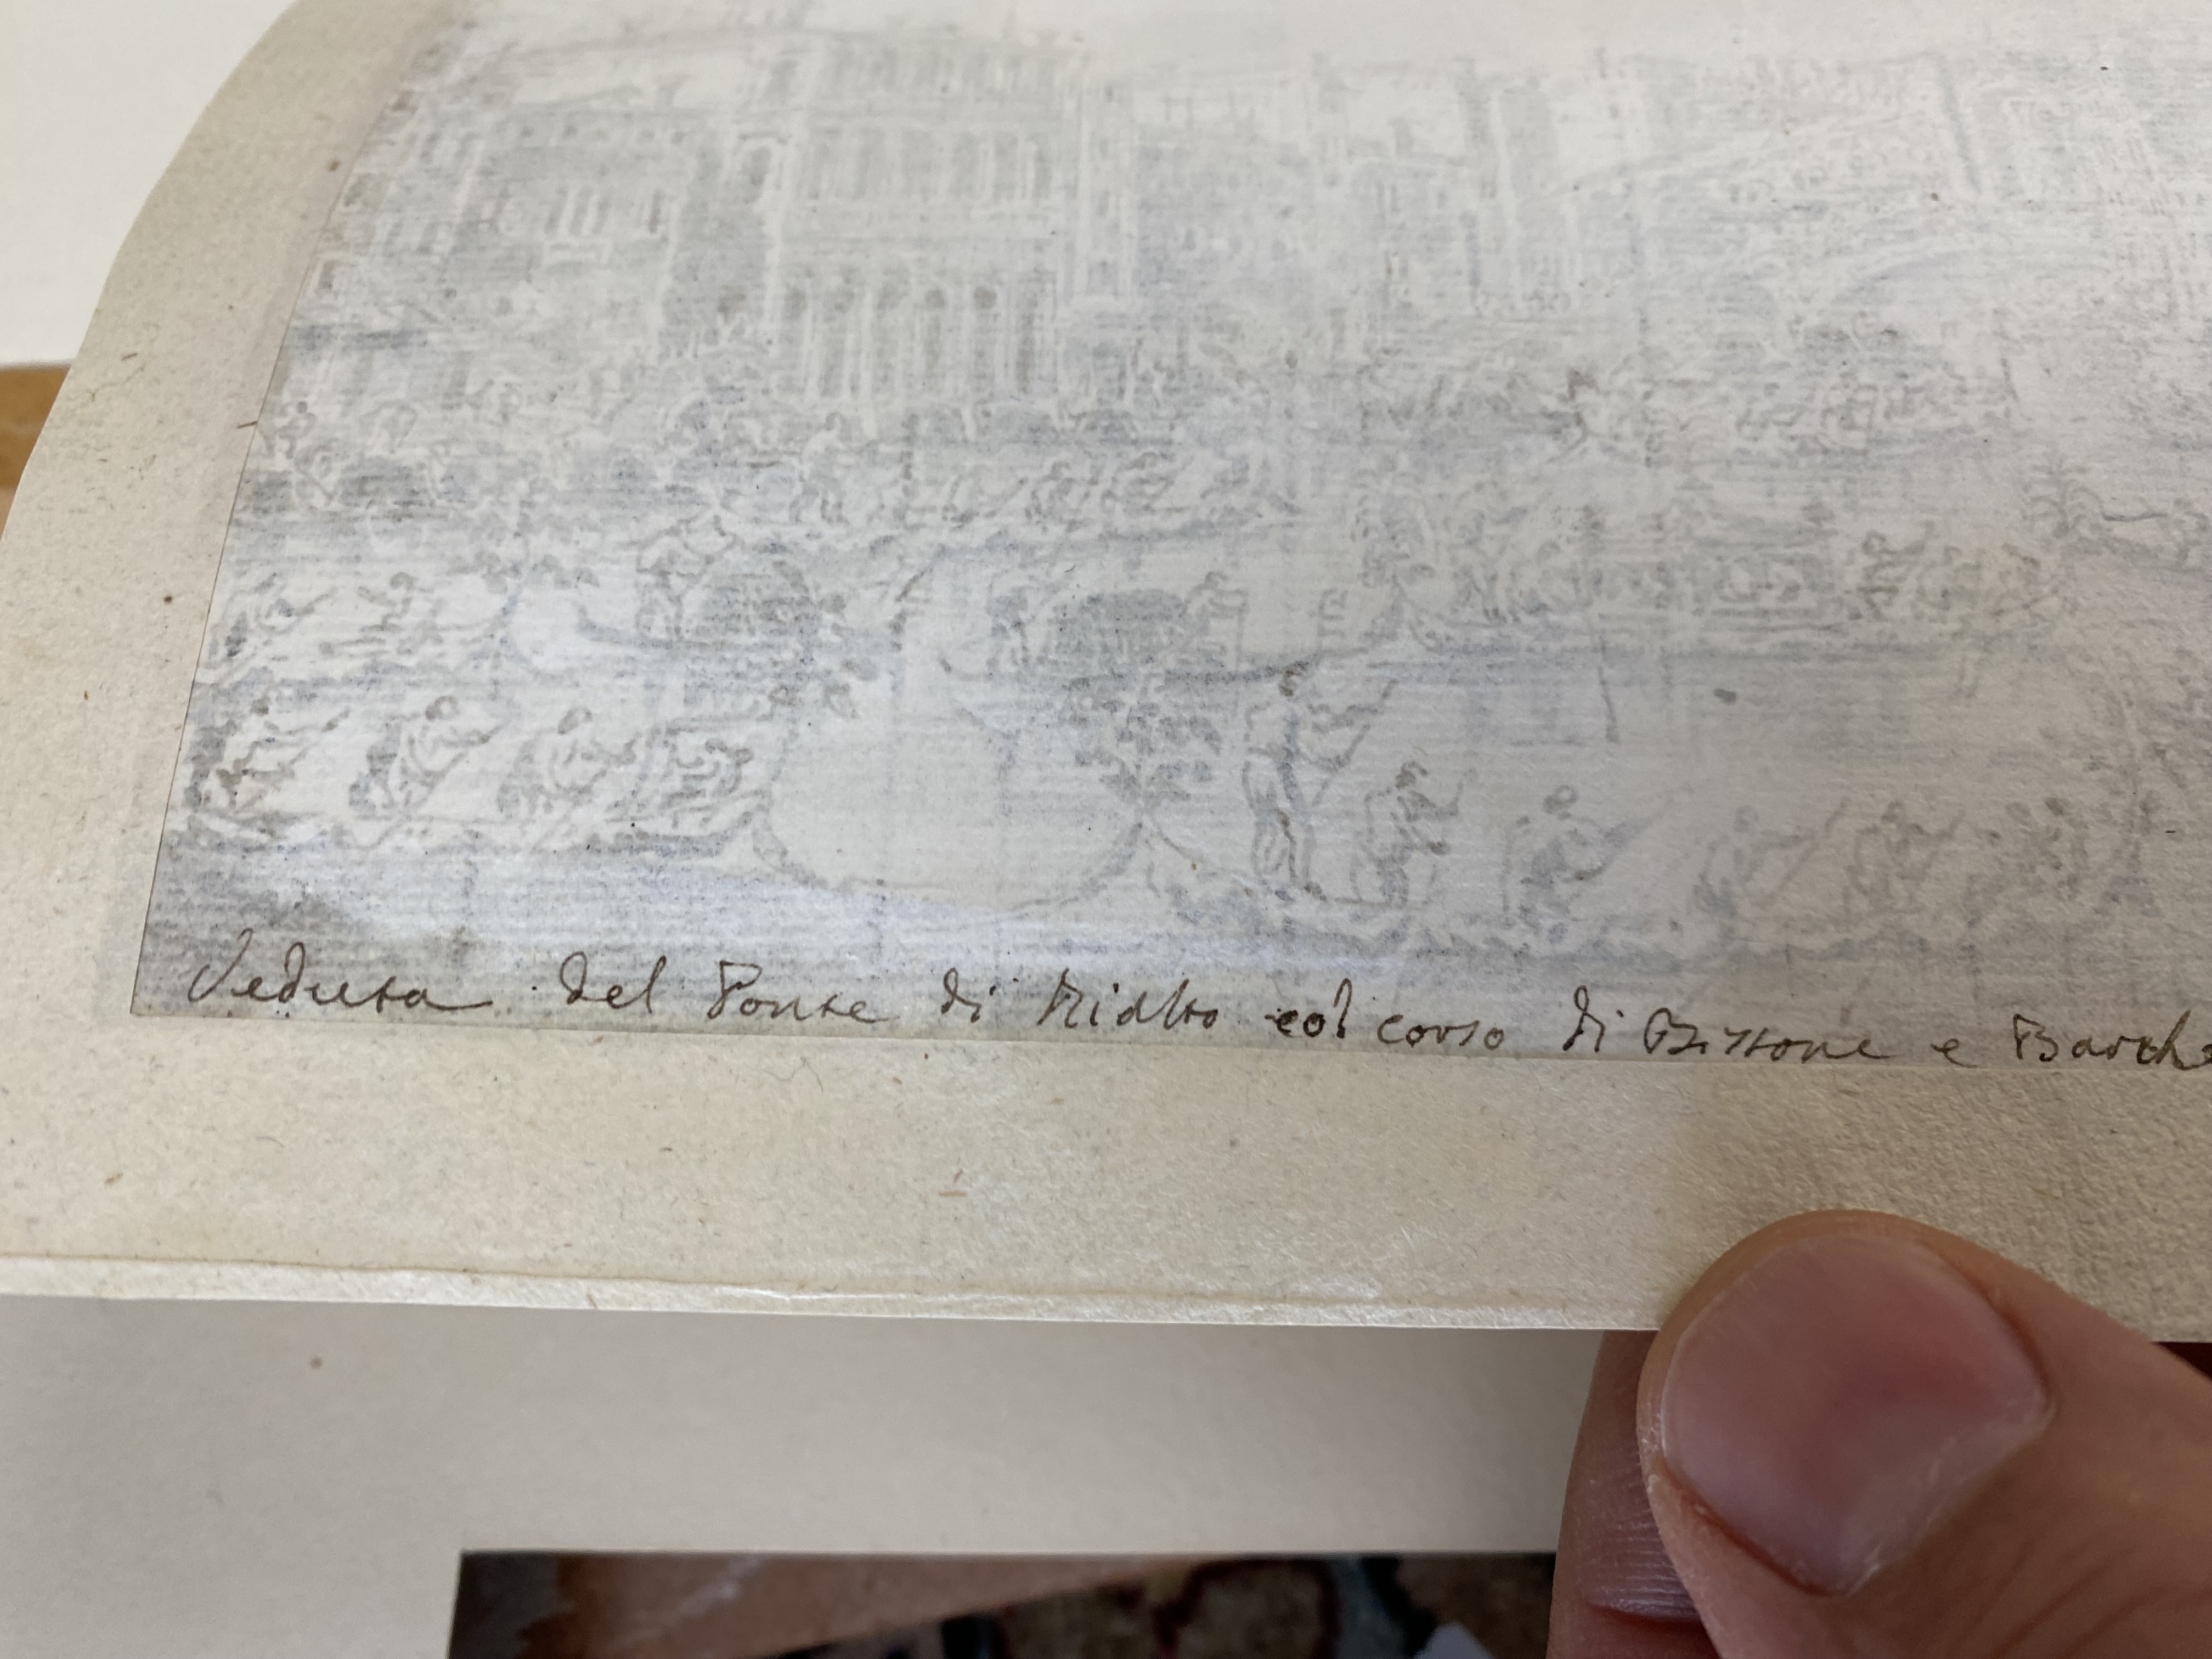 Veduta del Ponte di Rialto col corso di Bissone e Barche